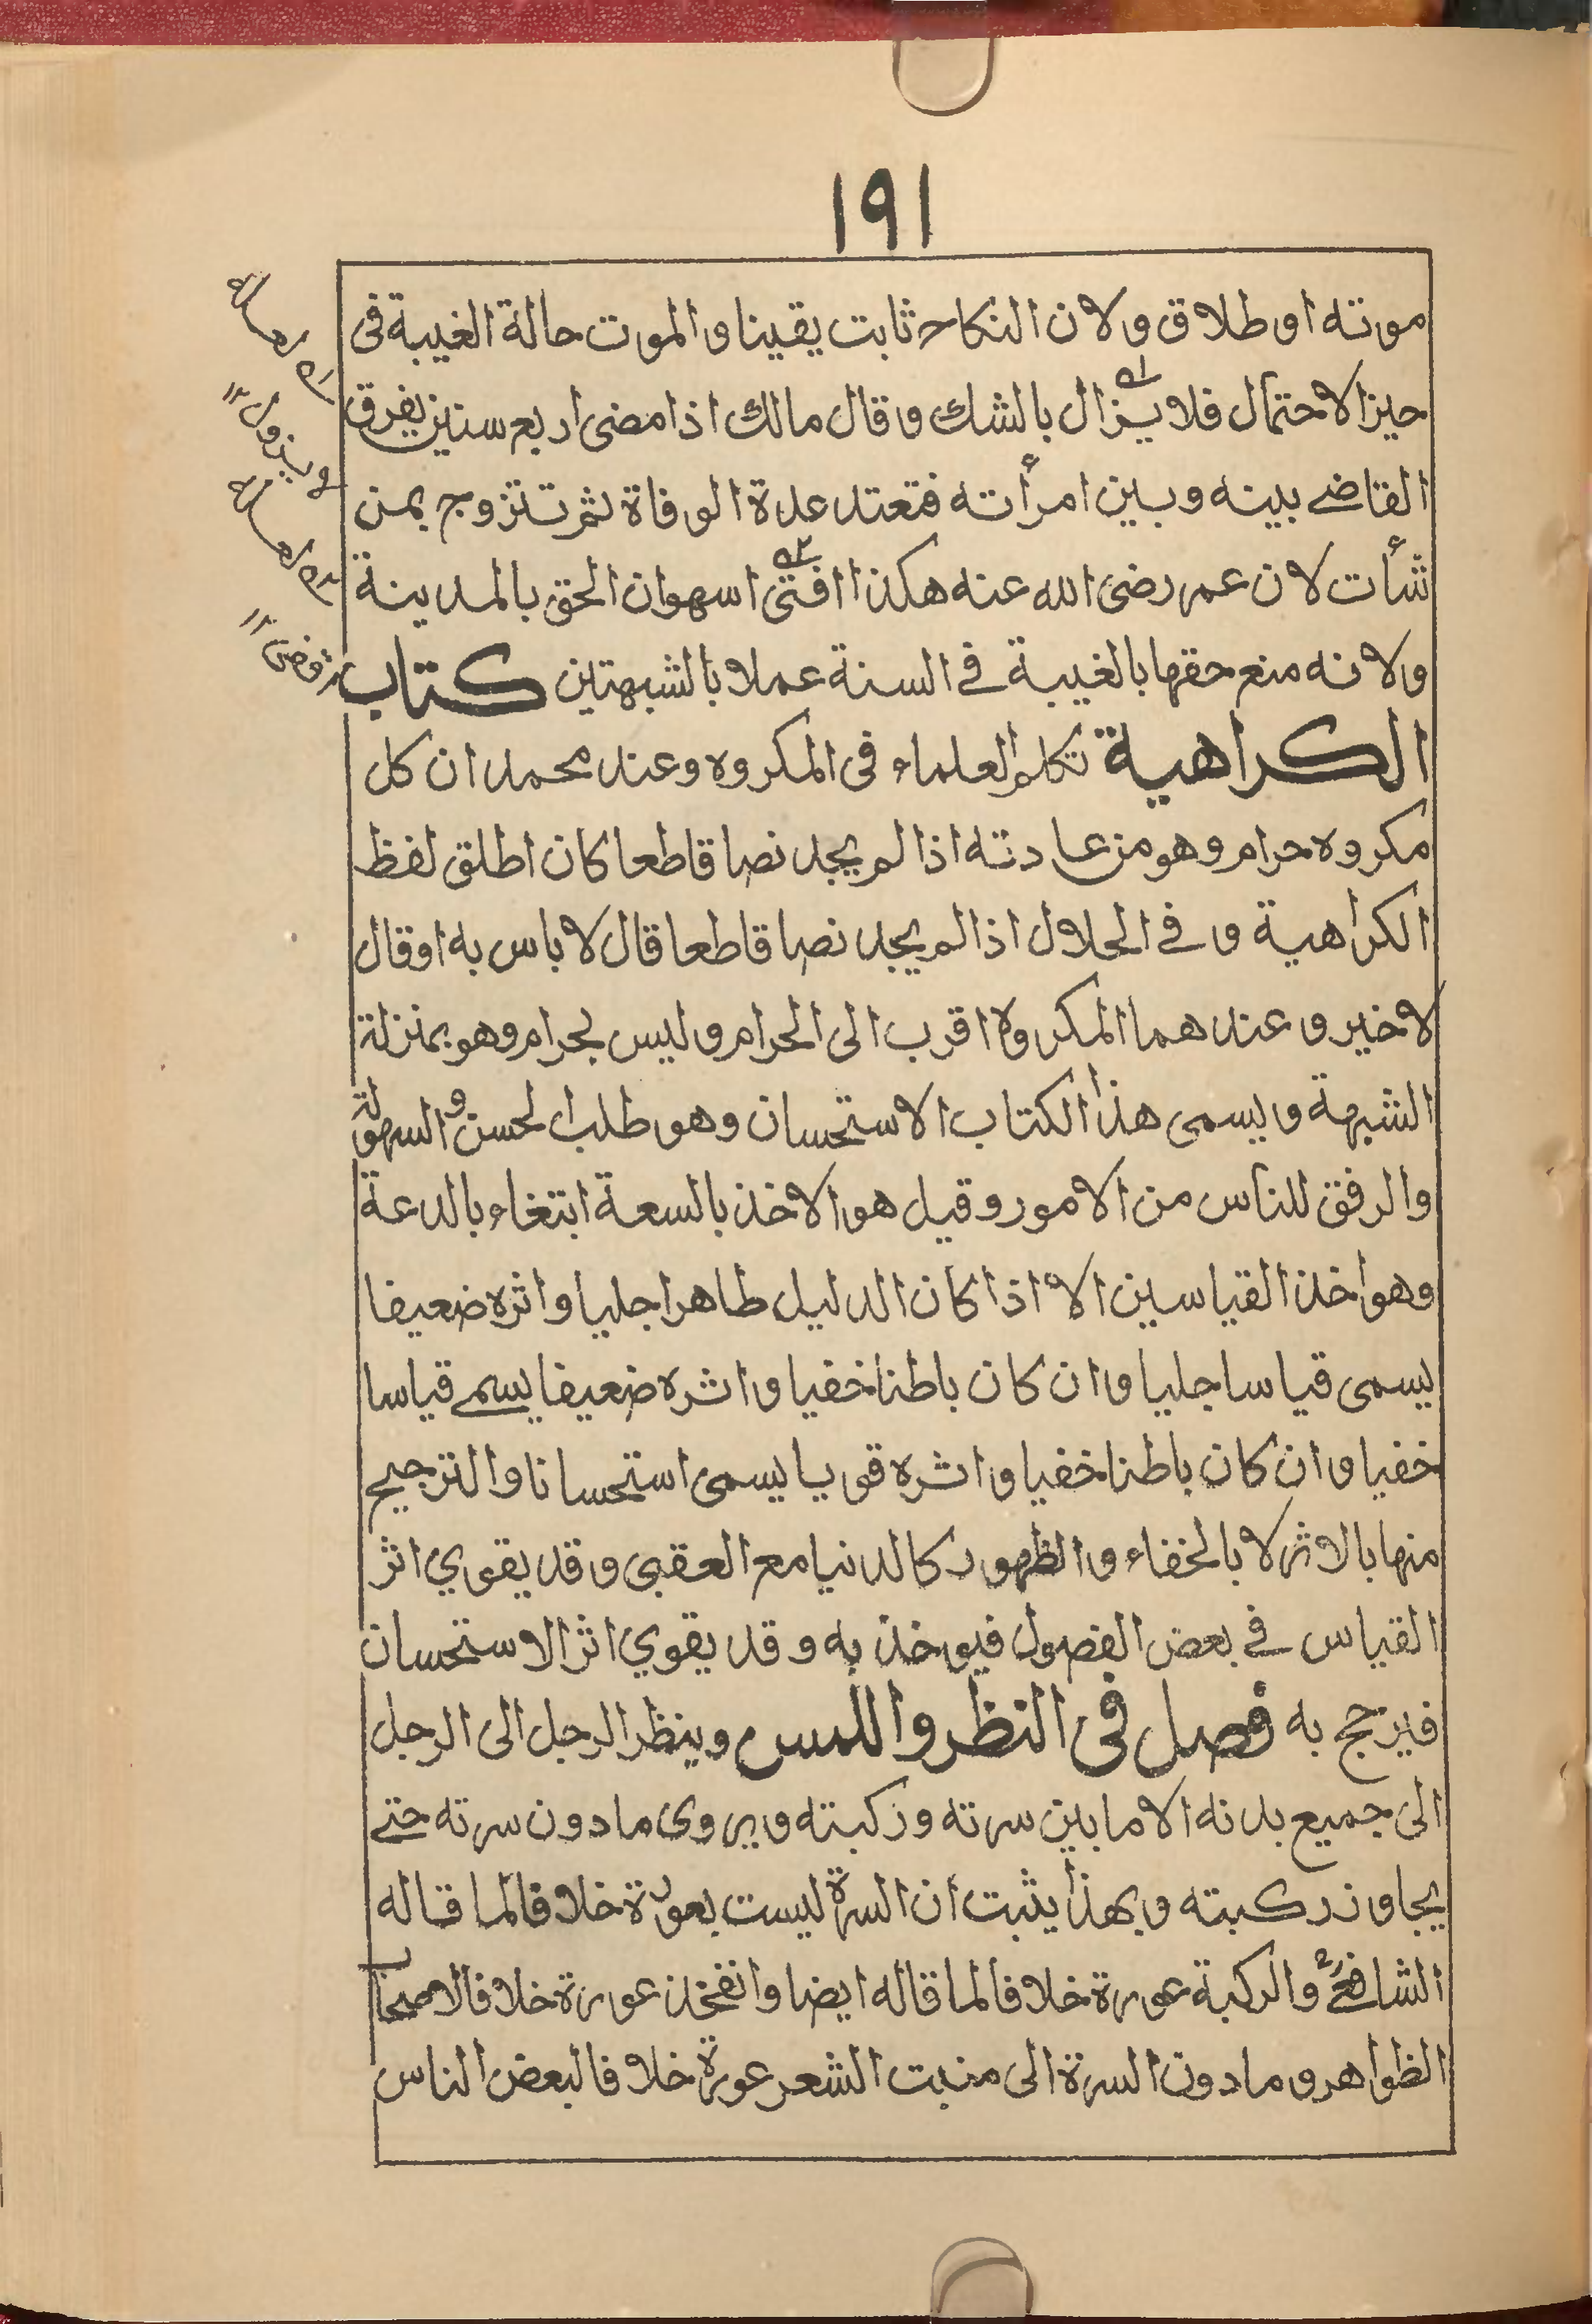 ١٩١
موته او طلاق ولان النكاح ثابت يقينا والموت حالة الغيبة فى
حيز الاحتمال فلا يزال بالشك وقال مالك اذا مضى اربع سنين يفرق
القاضے بينه وبين امرأته فتعتد عدة الوفاة ثم تتزوج بمن
شأت لان عمر رضى الله عنه هكذا افتى اسهوان الحق بالمدينة
ولانه منع حقها بالغيبة فے السنة عملا بالشبهتين كتاب
الكراهية تكلم العلماء فى المكروه وعند محمد ان كل
مكروه حرام وهو من عادته اذا لم يجد نصا قاطعا كان اطلق لفظ
الكراهية و فے الحلال اذا لم يجد نصا قاطعا قال لا باس به او قال
لا خير وعندهما المكروه اقرب الى الحرام وليس بحرام وهو بمنزلة
الشبهة ويسمى هذا الكتاب الاستحسان وهو طلب الحسن و السهولة
والرفق للناس من الامور وقيل هو الاخذ بالسعة ابتغاء بالدعة
وهو اخذ القياسين الا اذا كان الدليل ظاهرا جليا واثره ضعيفا
يسمى قياسا جليا وان كان باطنا خفيا واثره ضعيفا يسمے قياسا
خفيا وان كان باطنا خفيا واثره قويا يسمى استحسانا والترجيح
منها بالاثر لا بالخفاء والظهور كالدنيا مع العقبى وقد يقوي اثر
القياس فے بعض الفصول فيوخذ به وقد يقوي اثر الاستحسان
فيرجح به فصل فى النظر واللمس وينظر الرجل الى الرجل
الى جميع بدنه الا ما بين سرته وركبته ويروى ما دون سرته حتے
يجاوز ركبته وبهذا يثبت ان السرة ليست بعورة خلافا لما قاله
الشافعے والركبة عورة خلافا لما قاله ايضا وانفخذ عورة خلافا لاصحاب
الظواهر وما دون السرة الى منبت الشعر عورة خلافا لبعض الناس